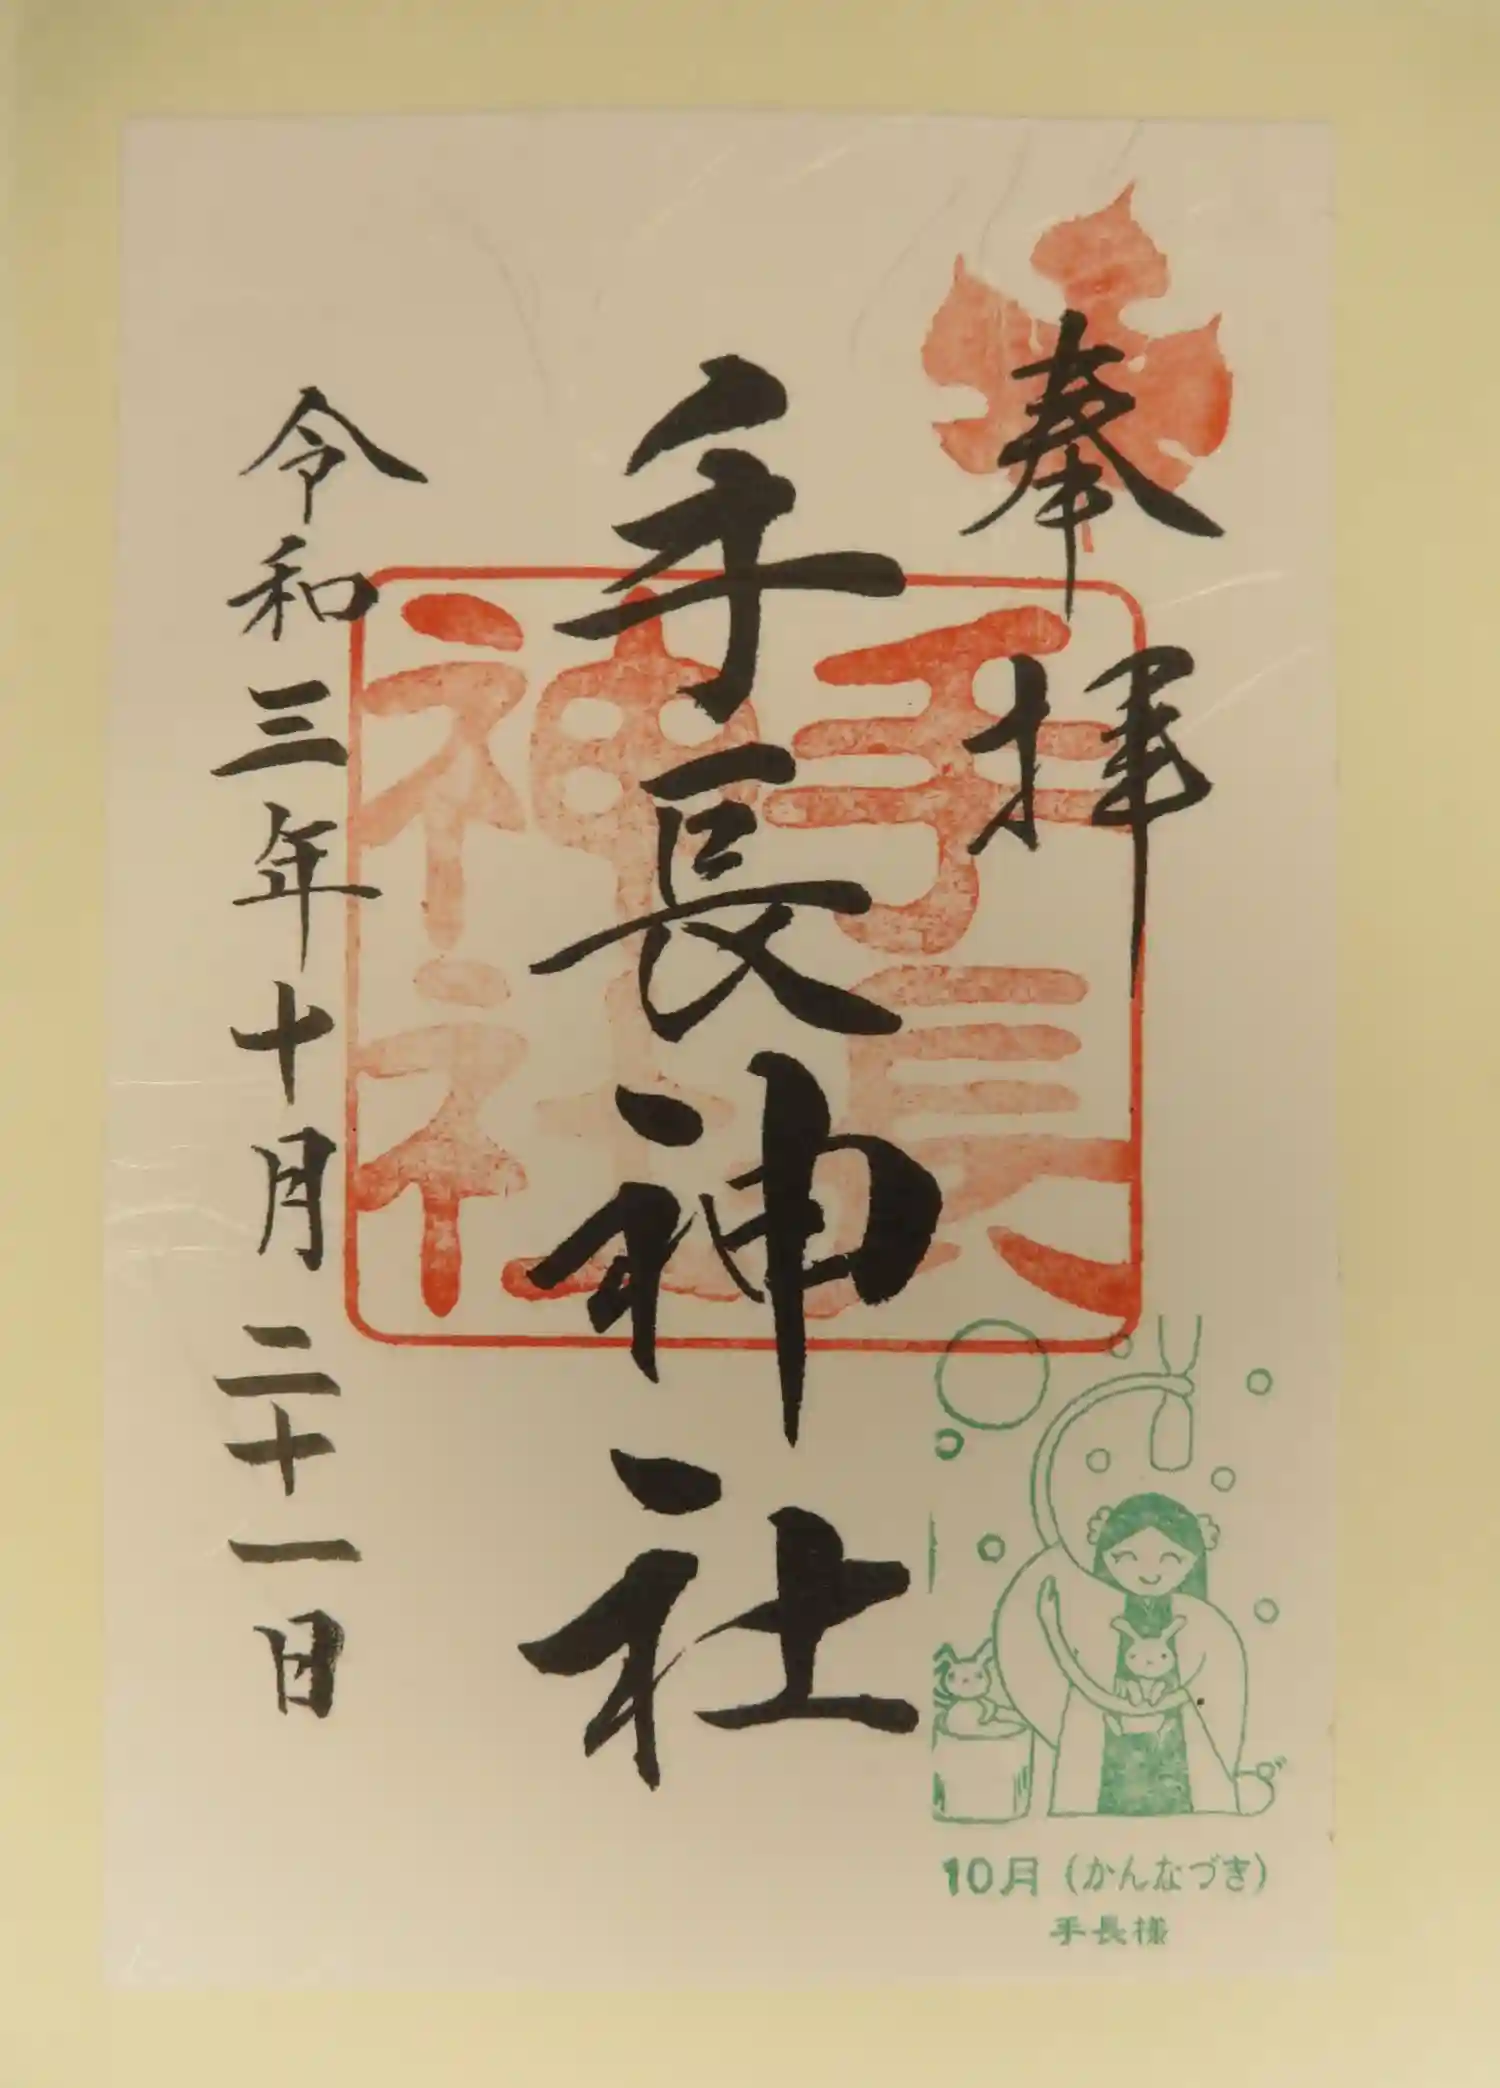 奉拝
手長神社
手長
神社
令和三年十月二十一日
10月（かんなづき）
手長様